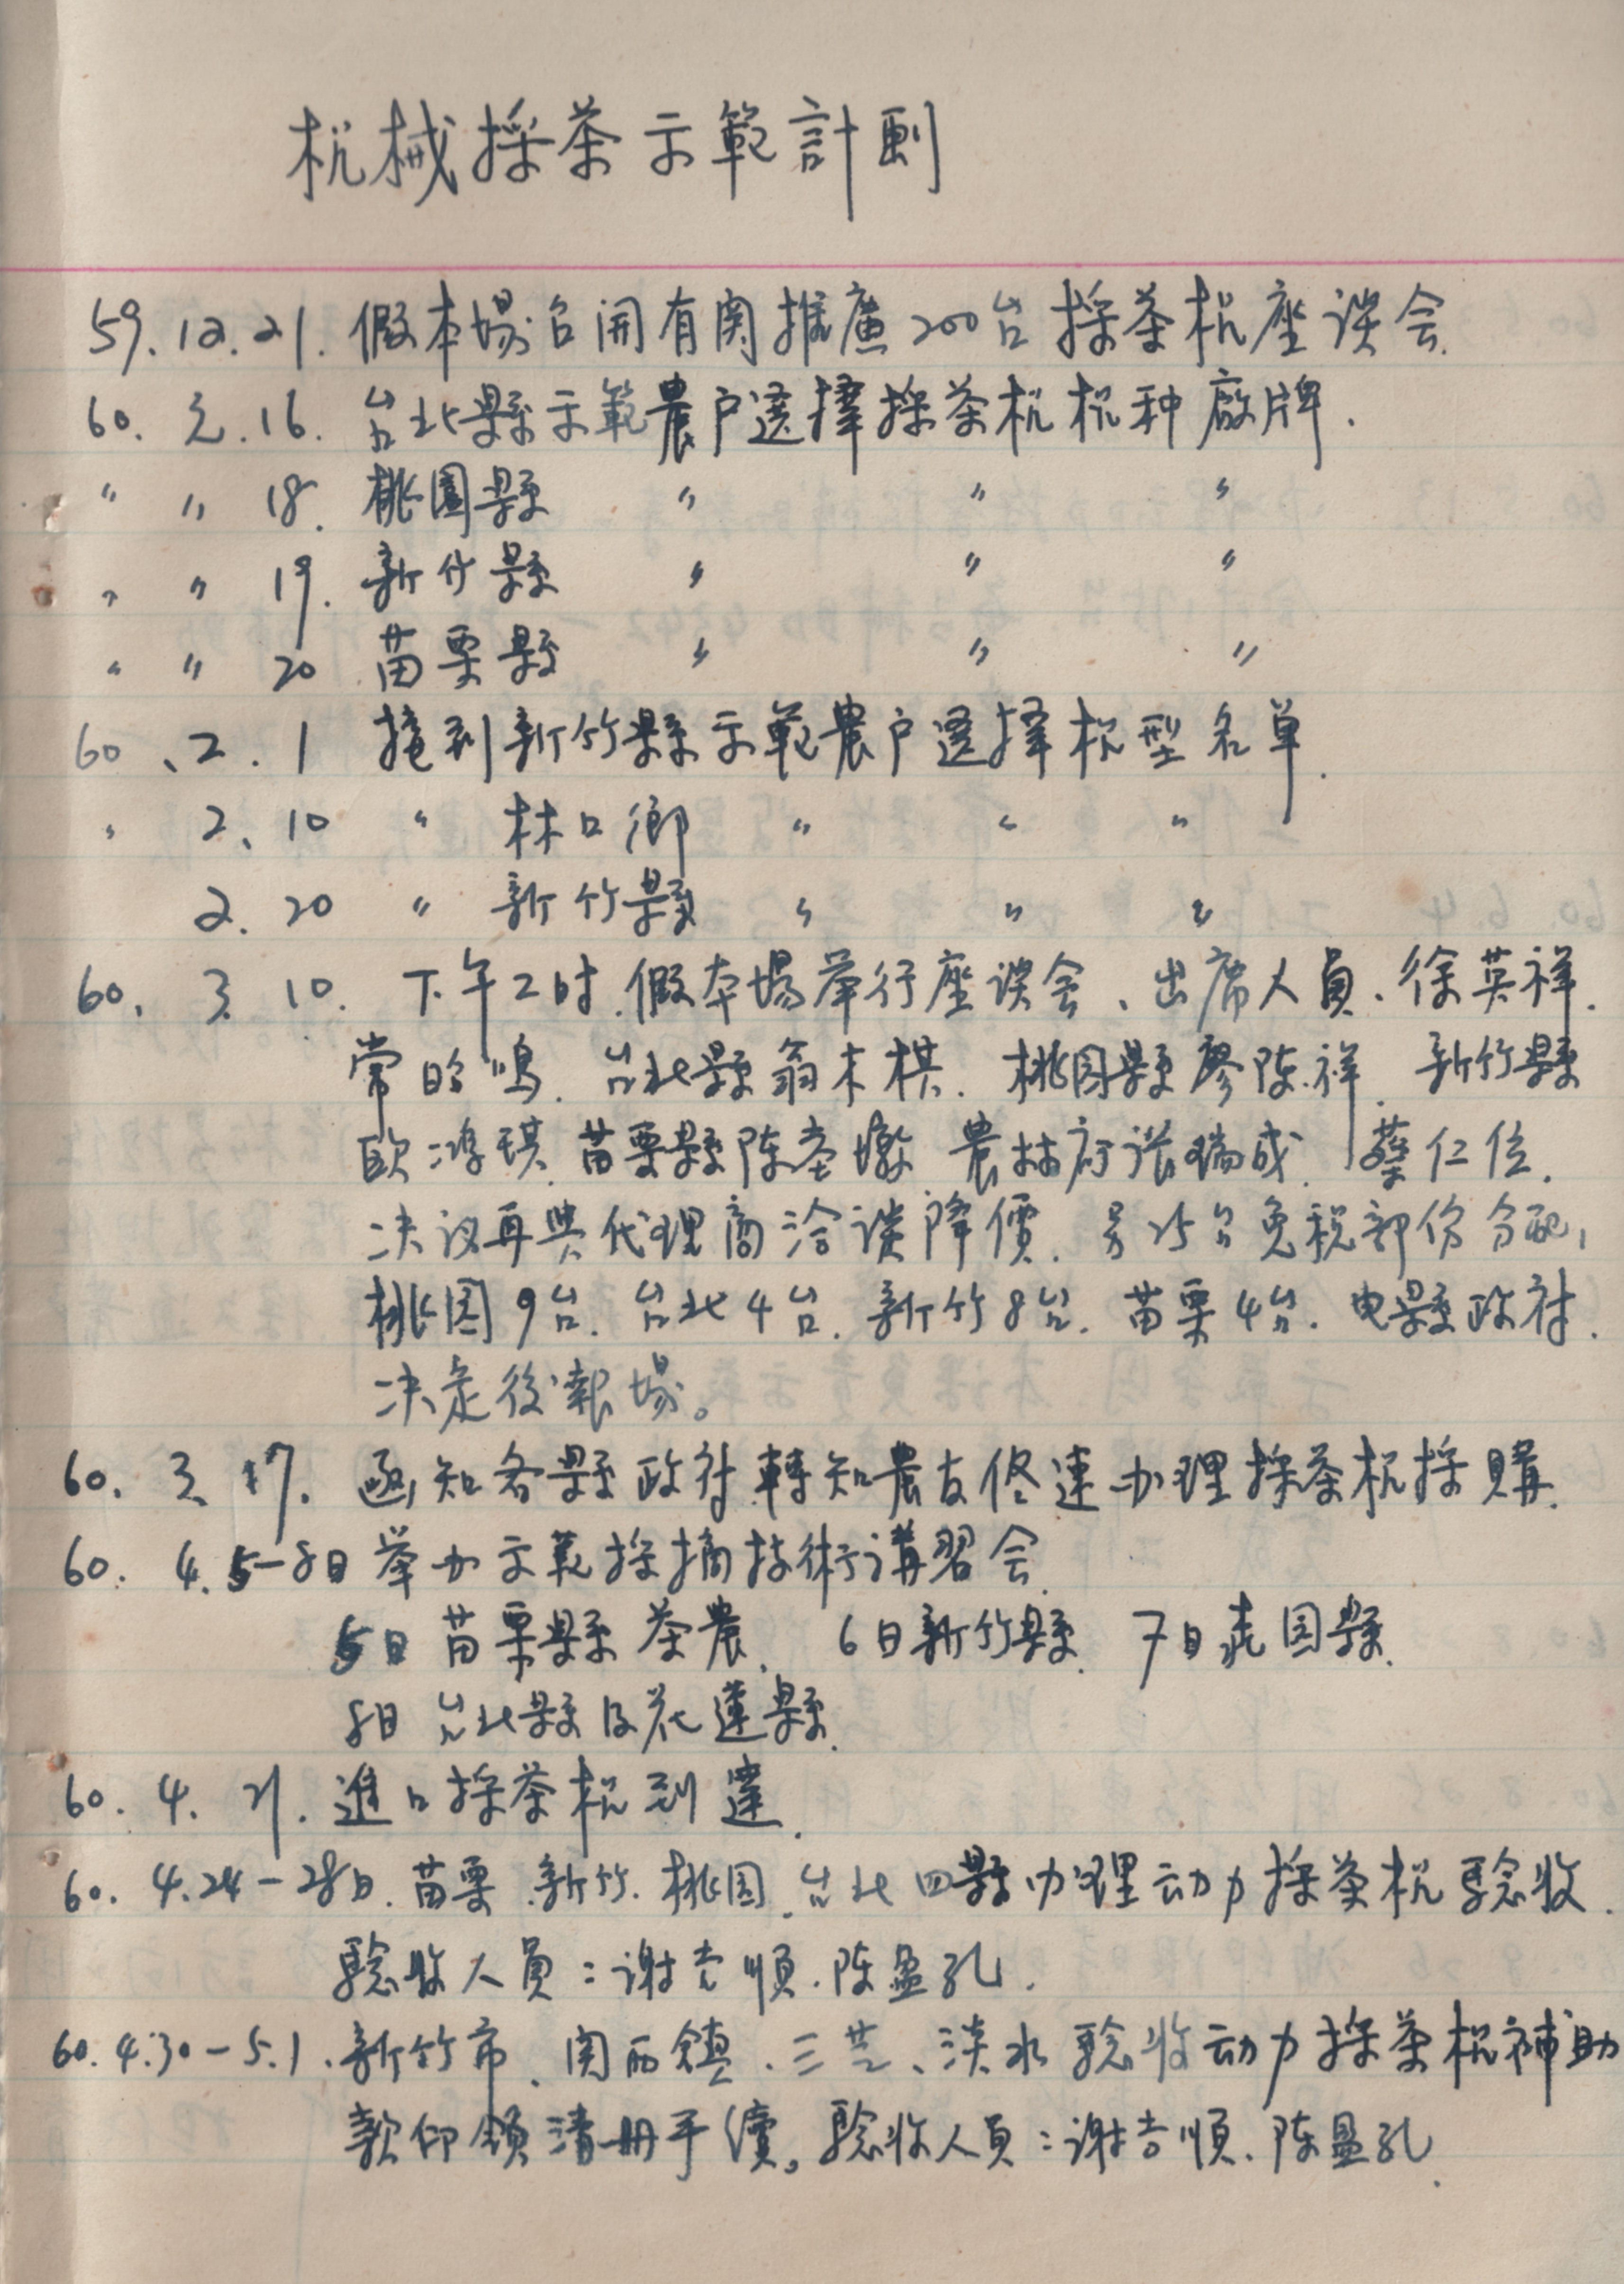 机械採茶示範計劃
59.12.21. 假本場召開有関推廣200台採茶机座談会.
60. 元.16. 台北縣示範農户選擇採茶机机种廠牌.
〃 〃 18. 桃園縣 〃 〃 〃
〃 〃 19. 新竹縣 〃 〃 〃
〃 〃 20 苗栗縣 〃 〃 〃
60、2. 1 接到新竹縣示範農户選擇机型名单.
〃 2、10 〃 林口鄉 〃 〃 〃
2. 20 〃 新竹縣 〃 〃 〃
60. 3. 10. 下午2时.假本場举行座談会、出席人員、徐英祥.
常 鳴. 台北縣翁木棋. 桃园縣廖陈祥. 新竹縣
欧鴻琪.苗栗縣陈 農林 瑞成. 蔡仁位.
决议再與代理商洽談降價. 另25台免税部份分配,
桃园9台. 台北4台. 新竹8台. 苗栗4台. 由縣政府.
决定後報場。
60. 3. 17. 函知各縣政府轉知農友 速办理採茶机採購.
60. 4. 5-8日举办示范採摘技術講習会.
5日 苗栗縣茶農. 6日新竹縣. 7日 园縣.
8日 台北縣及花蓮縣.
60. 4. 21. 進口採茶机到達.
60. 4.24-28日.苗栗.新竹.桃园.台北四縣办理动力採茶机驗收.
驗收人員:谢 順.陈盈孔.
60.4.30-5.1、新竹市、関西鎮、三芝、淡水驗收动力採茶机補助
款印領清册手續。驗收人員:谢 順.陈盈孔.